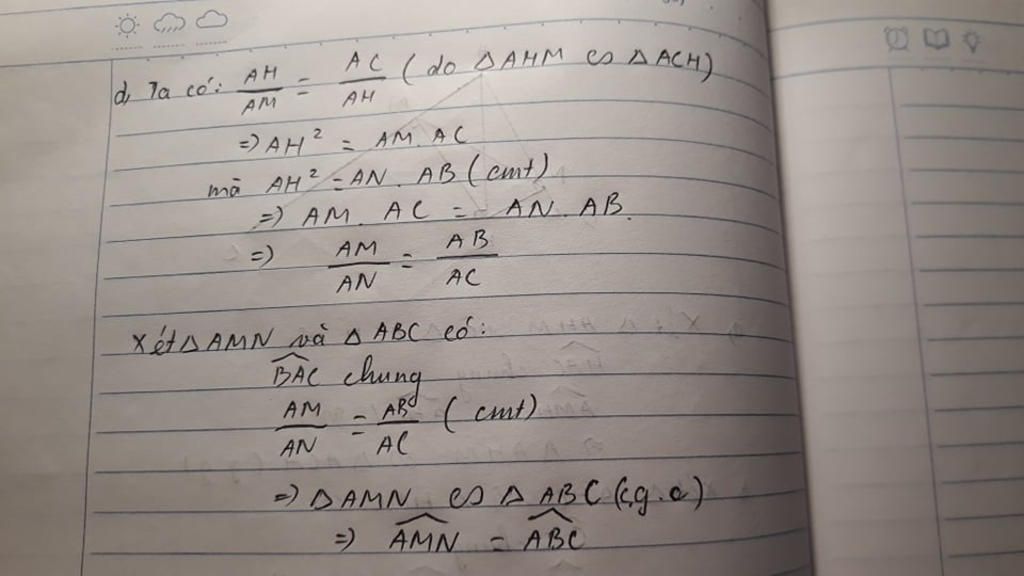 d, Ta có: AH/AM = AC/AH (do ΔAHM ∽ ΔACH)
=> AH² = AM. AC
mà AH² = AN. AB (cmt)
=> AM. AC = AN. AB.
=> AM/AN = AB/AC
Xét ΔAMN và ΔABC có:
B̂AC chung
AM/AN = AB/AC (cmt)
=> ΔAMN ∽ ΔABC (c.g.c)
=> ÂMN = ÂBC